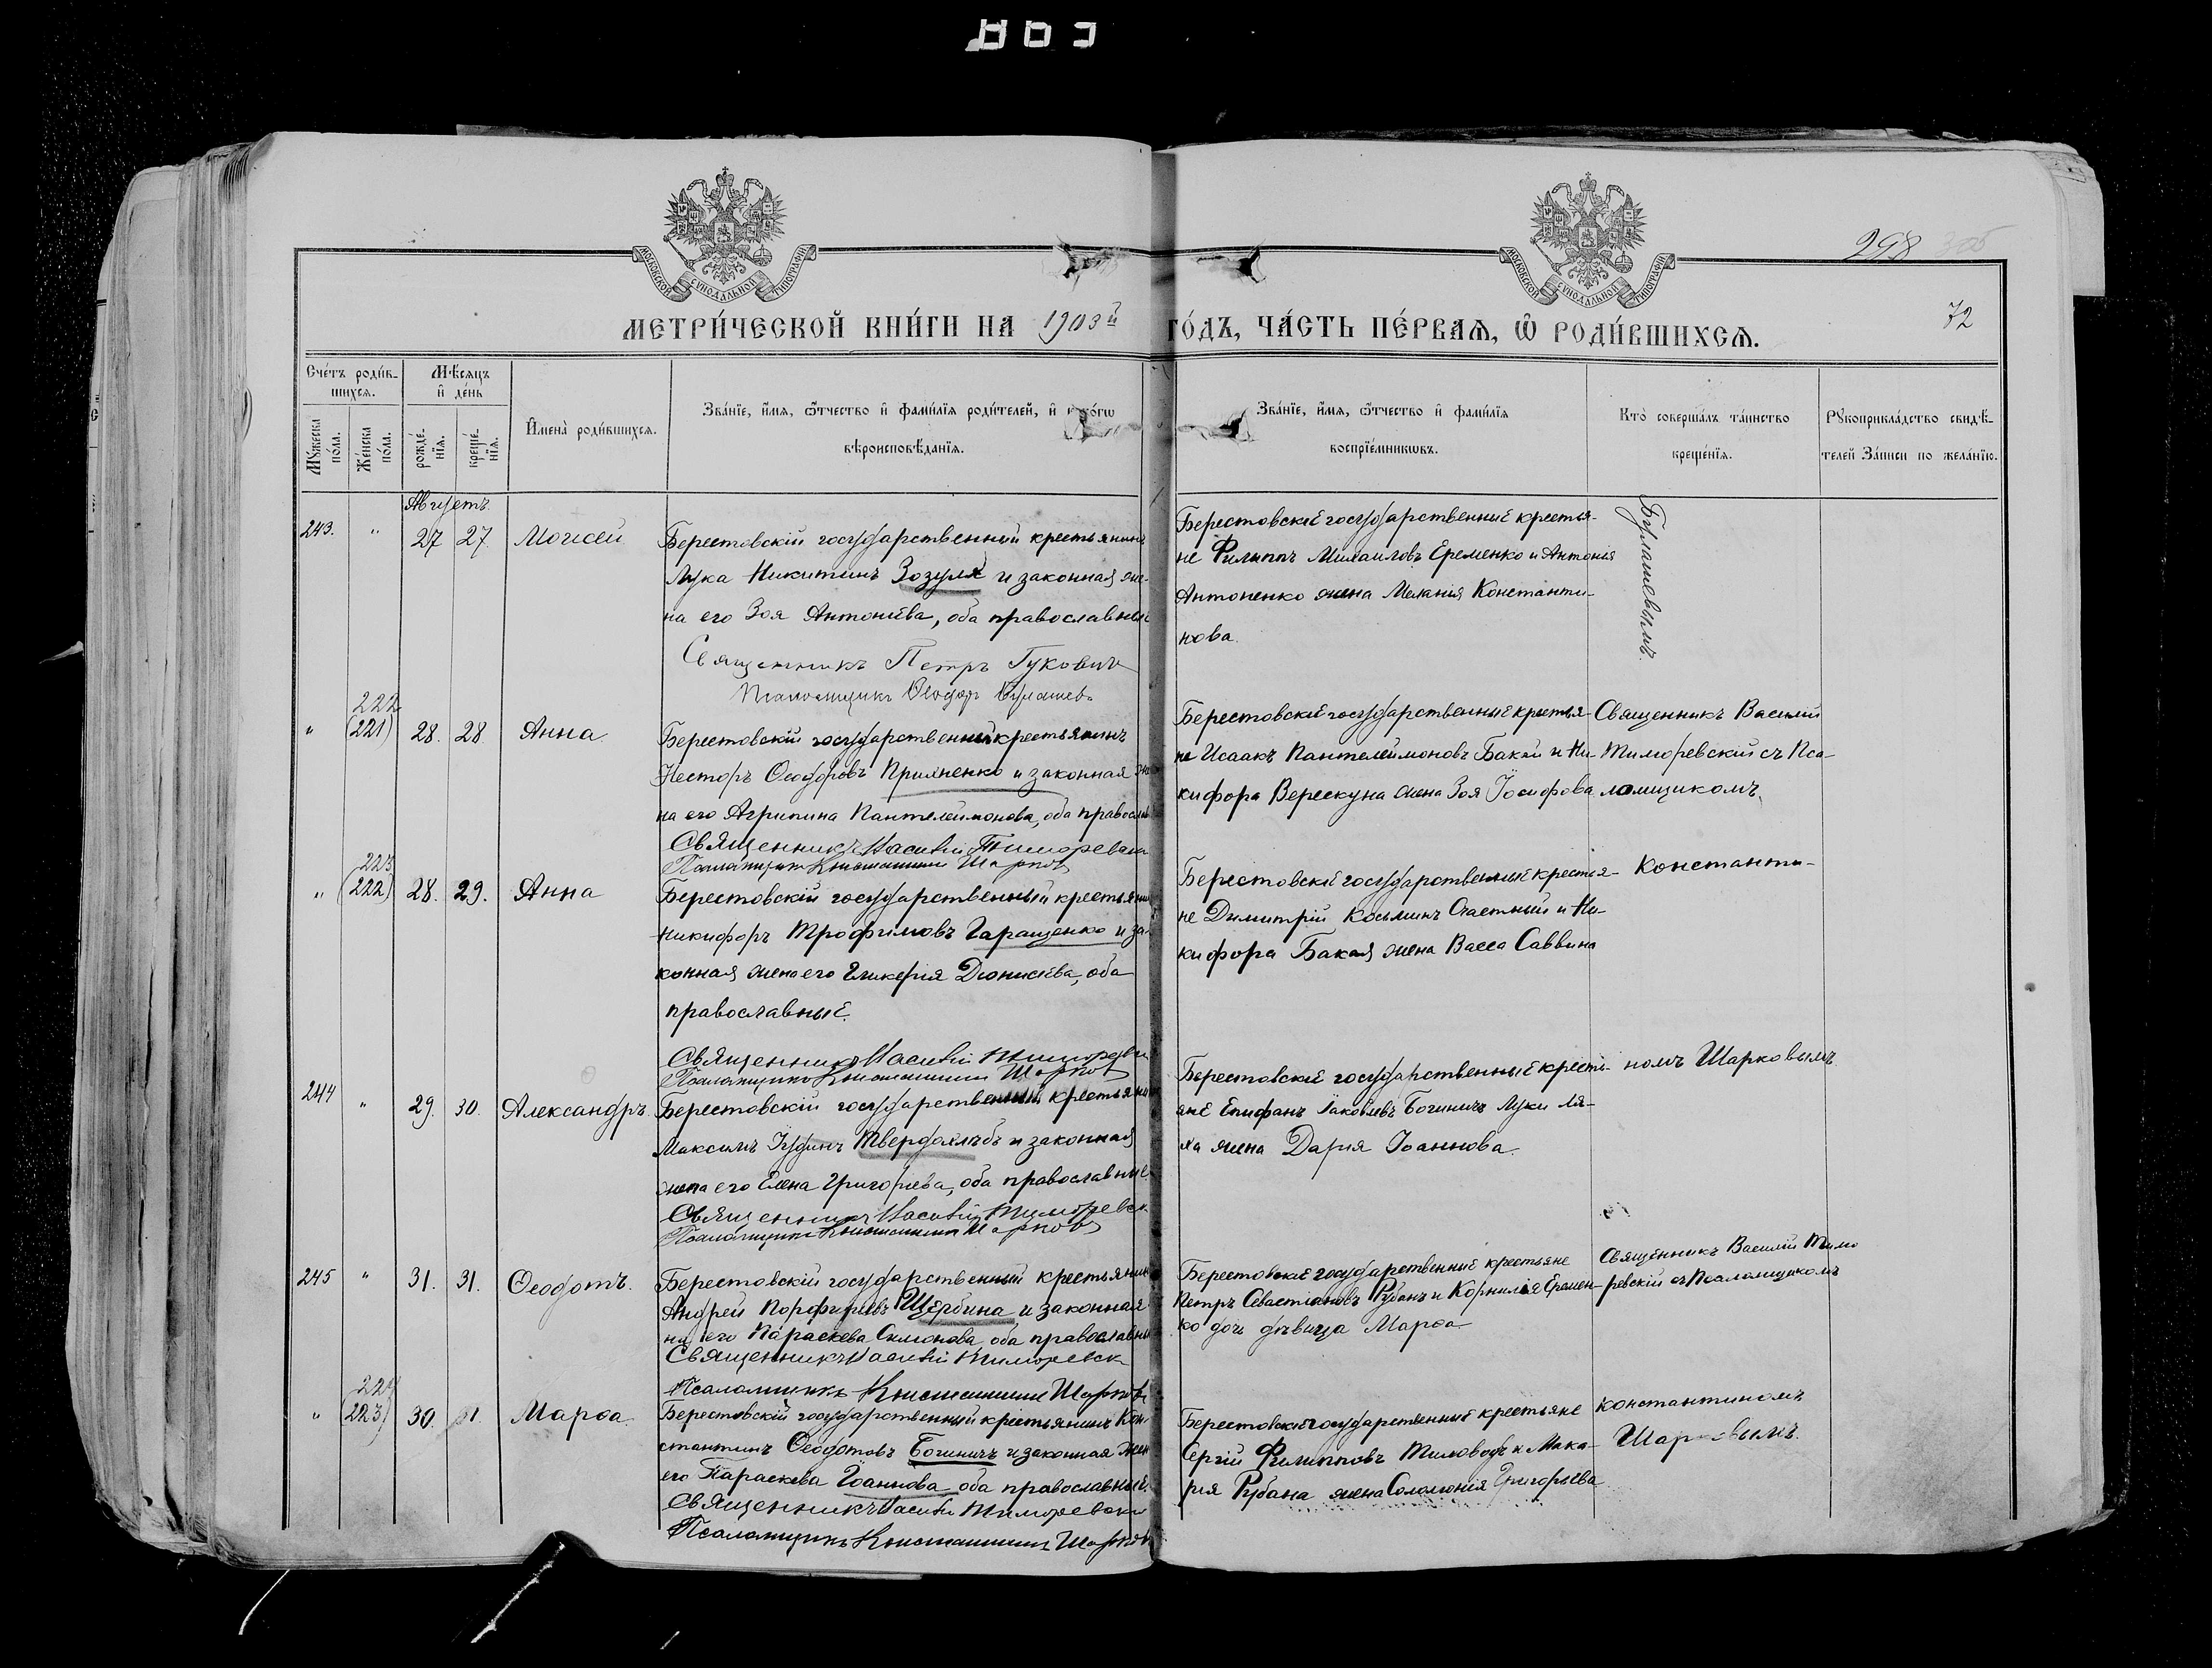 298 305
МЕТРИ́ЧЕСКОЙ КНИ́ГИ НА 1903й ГО́ДЪ, ЧА́СТЬ ПЕ́РВАѦ, Ѡ҆ РОДИ́ВШИХСѦ.
72
МОСКОВСКОЙ СѴНОДАЛЬНОЙ ТИПОГРАФІИ
МОСКОВСКОЙ СѴНОДАЛЬНОЙ ТИПОГРАФІИ
Сче́тъ роди́в-
шихсѧ.
Мꙋ́жеска по́ла.
Же́нска по́ла.
Мѣ́сѧцъ
и҆ де́нь
рожде́-
нїѧ.
креще́-
нїѧ.
И҆мена̀ роди́вшихсѧ.
Зва́нїе, и҆́мѧ, ѻ҆́тчество и҆ фами́лїѧ роди́телей, и҆
вѣроисповѣ́данїѧ.
Зва́нїе, и҆́мѧ, ѻ҆́тчество и҆ фами́лїѧ
воспрїе́мникѡвъ.
Кто̀ соверша́лъ та́инство
креще́нїѧ.
Рꙋкоприкла́дство свидѣ́-
телей за́писи по жела́нїю.
Августъ.
243. " 27 27. Моисей
Берестовскій государственный крестьянинъ
Лука Никитинъ Зозуля и законная же-
на его Зоя Антоніева, оба православные
Священникъ Петръ Гукович
Псаломщикъ Ѳеодоръ Булашевъ
Берестовскіе государственные крестья-
не Филиппъ Михаиловъ Еременко и Антонія
Антоненко жена Меланія Константи-
нова.
Булашевымъ.
222
" (221) 28. 28. Анна.
Берестовскій государственный крестьянинъ
Несторъ Ѳеодоровъ Прихненко и законная же
на его Агрипина Пантелеимонова, оба правосл
Священникъ Василій Тиморевскій
Псаломщикъ Константинъ Шарковъ
Берестовскіе государственные крестья-
не Исаакъ Пантелеимоновъ Бакай и Ни-
кифора Верескуна жена Зоя Іосифова
Священникъ Василій
Тиморевскій съ Пса-
ломщикомъ
223
" (222) 28. 29. Анна
Берестовскій государственный крестьянин
Никифоръ Трофимовъ Гаращенко и за-
конная жена его Гликерія Діонисіева, оба
православные.
Священникъ Василій Тиморевскій
Псаломщикъ Константинъ Шарковъ
Берестовскіе государственные крестья-
не Димитрій Косьминъ Счастный и Ни-
кифора Бакая жена Васса Саввина
Константи-
244 " 29. 30. Александръ.
Берестовскій государственный крестьянин
Максимъ Іудинъ Твердохлѣбъ и законная
жена его Елена Григорьева, оба православные
Священникъ Василій Тиморевск
Псаломщикъ Константинъ Шарковъ
Берестовскіе государственные кресть-
яне Епифанъ Іаковлевъ Богиничъ Луки Ля-
ха жена Дарія Іоаннова.
номъ Шарковымъ.
245 " 31. 31. Ѳеодотъ.
Берестовскій государственный крестьянин
Андрей Порфирьевъ Щербина и законная
на его Параскева Симонова оба православные
Священникъ Василій Тиморевск
Псаломщикъ Константинъ Шарковъ
Берестовскіе государственные крестьяне
Петръ Севастіановъ Рубанъ и Корнилія Еремен-
ко дочь дѣвица Марѳа
Священникъ Василій Тимо
ревскій съ Псаломщикомъ
224
" (223) 30. 31. Марѳа.
Берестовскій государственный крестьянинъ Кон-
стантинъ Ѳеодотовъ Богиничъ и законная жен
его Параскева Іоаннова оба православные.
Священникъ Василій Тиморевскій
Псаломщикъ Константинъ Шарковъ
Берестовскіе государственные крестьяне
Сергій Филипповъ Тиховодъ и Мака-
рія Рубана жена Соломонія Григорьева
Константиномъ
Шарковымъ.